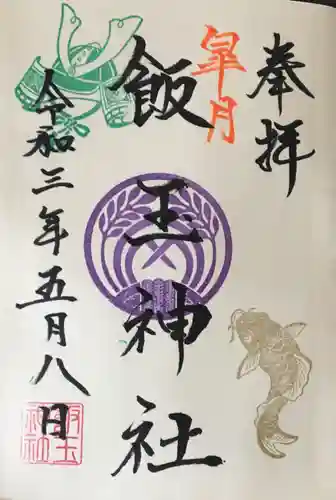 奉拝
皐月
飯玉神社
令和三年五月八日
飯玉神社